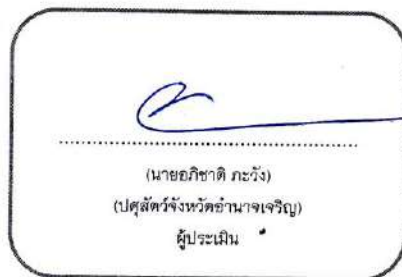 (นายอภิชาติ ภะวัง)
(ปศุสัตว์จังหวัดอำนาจเจริญ)
ผู้ประเมิน